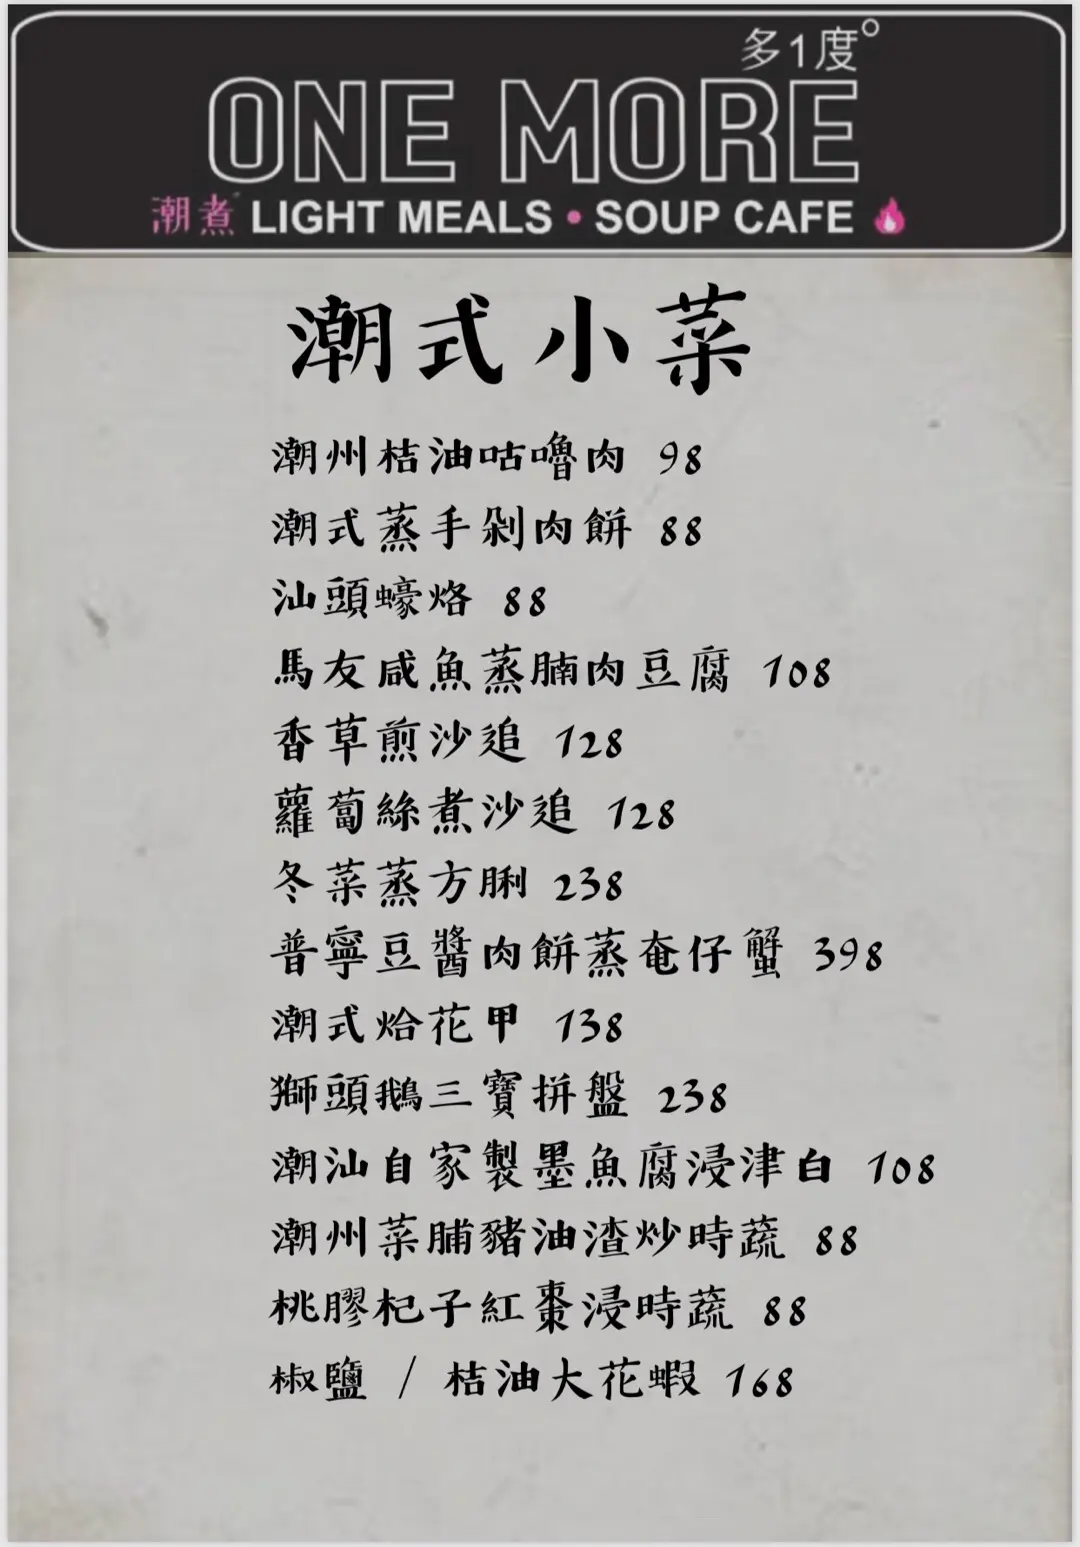 多1度°
ONE MORE
潮煮 LIGHT MEALS • SOUP CAFE
潮式小菜
潮州桔油咕嚕肉 98
潮式蒸手剁肉餅 88
汕頭蠔烙 88
馬友咸魚蒸腩肉豆腐 108
香草煎沙追 128
蘿蔔絲煮沙追 128
冬菜蒸方脷 238
普寧豆醬肉餅蒸奄仔蟹 398
潮式烚花甲 138
獅頭鵝三寶拼盤 238
潮汕自家製墨魚腐浸津白 108
潮州菜脯豬油渣炒時蔬 88
桃膠杞子紅棗浸時蔬 88
椒鹽 / 桔油大花蝦 168